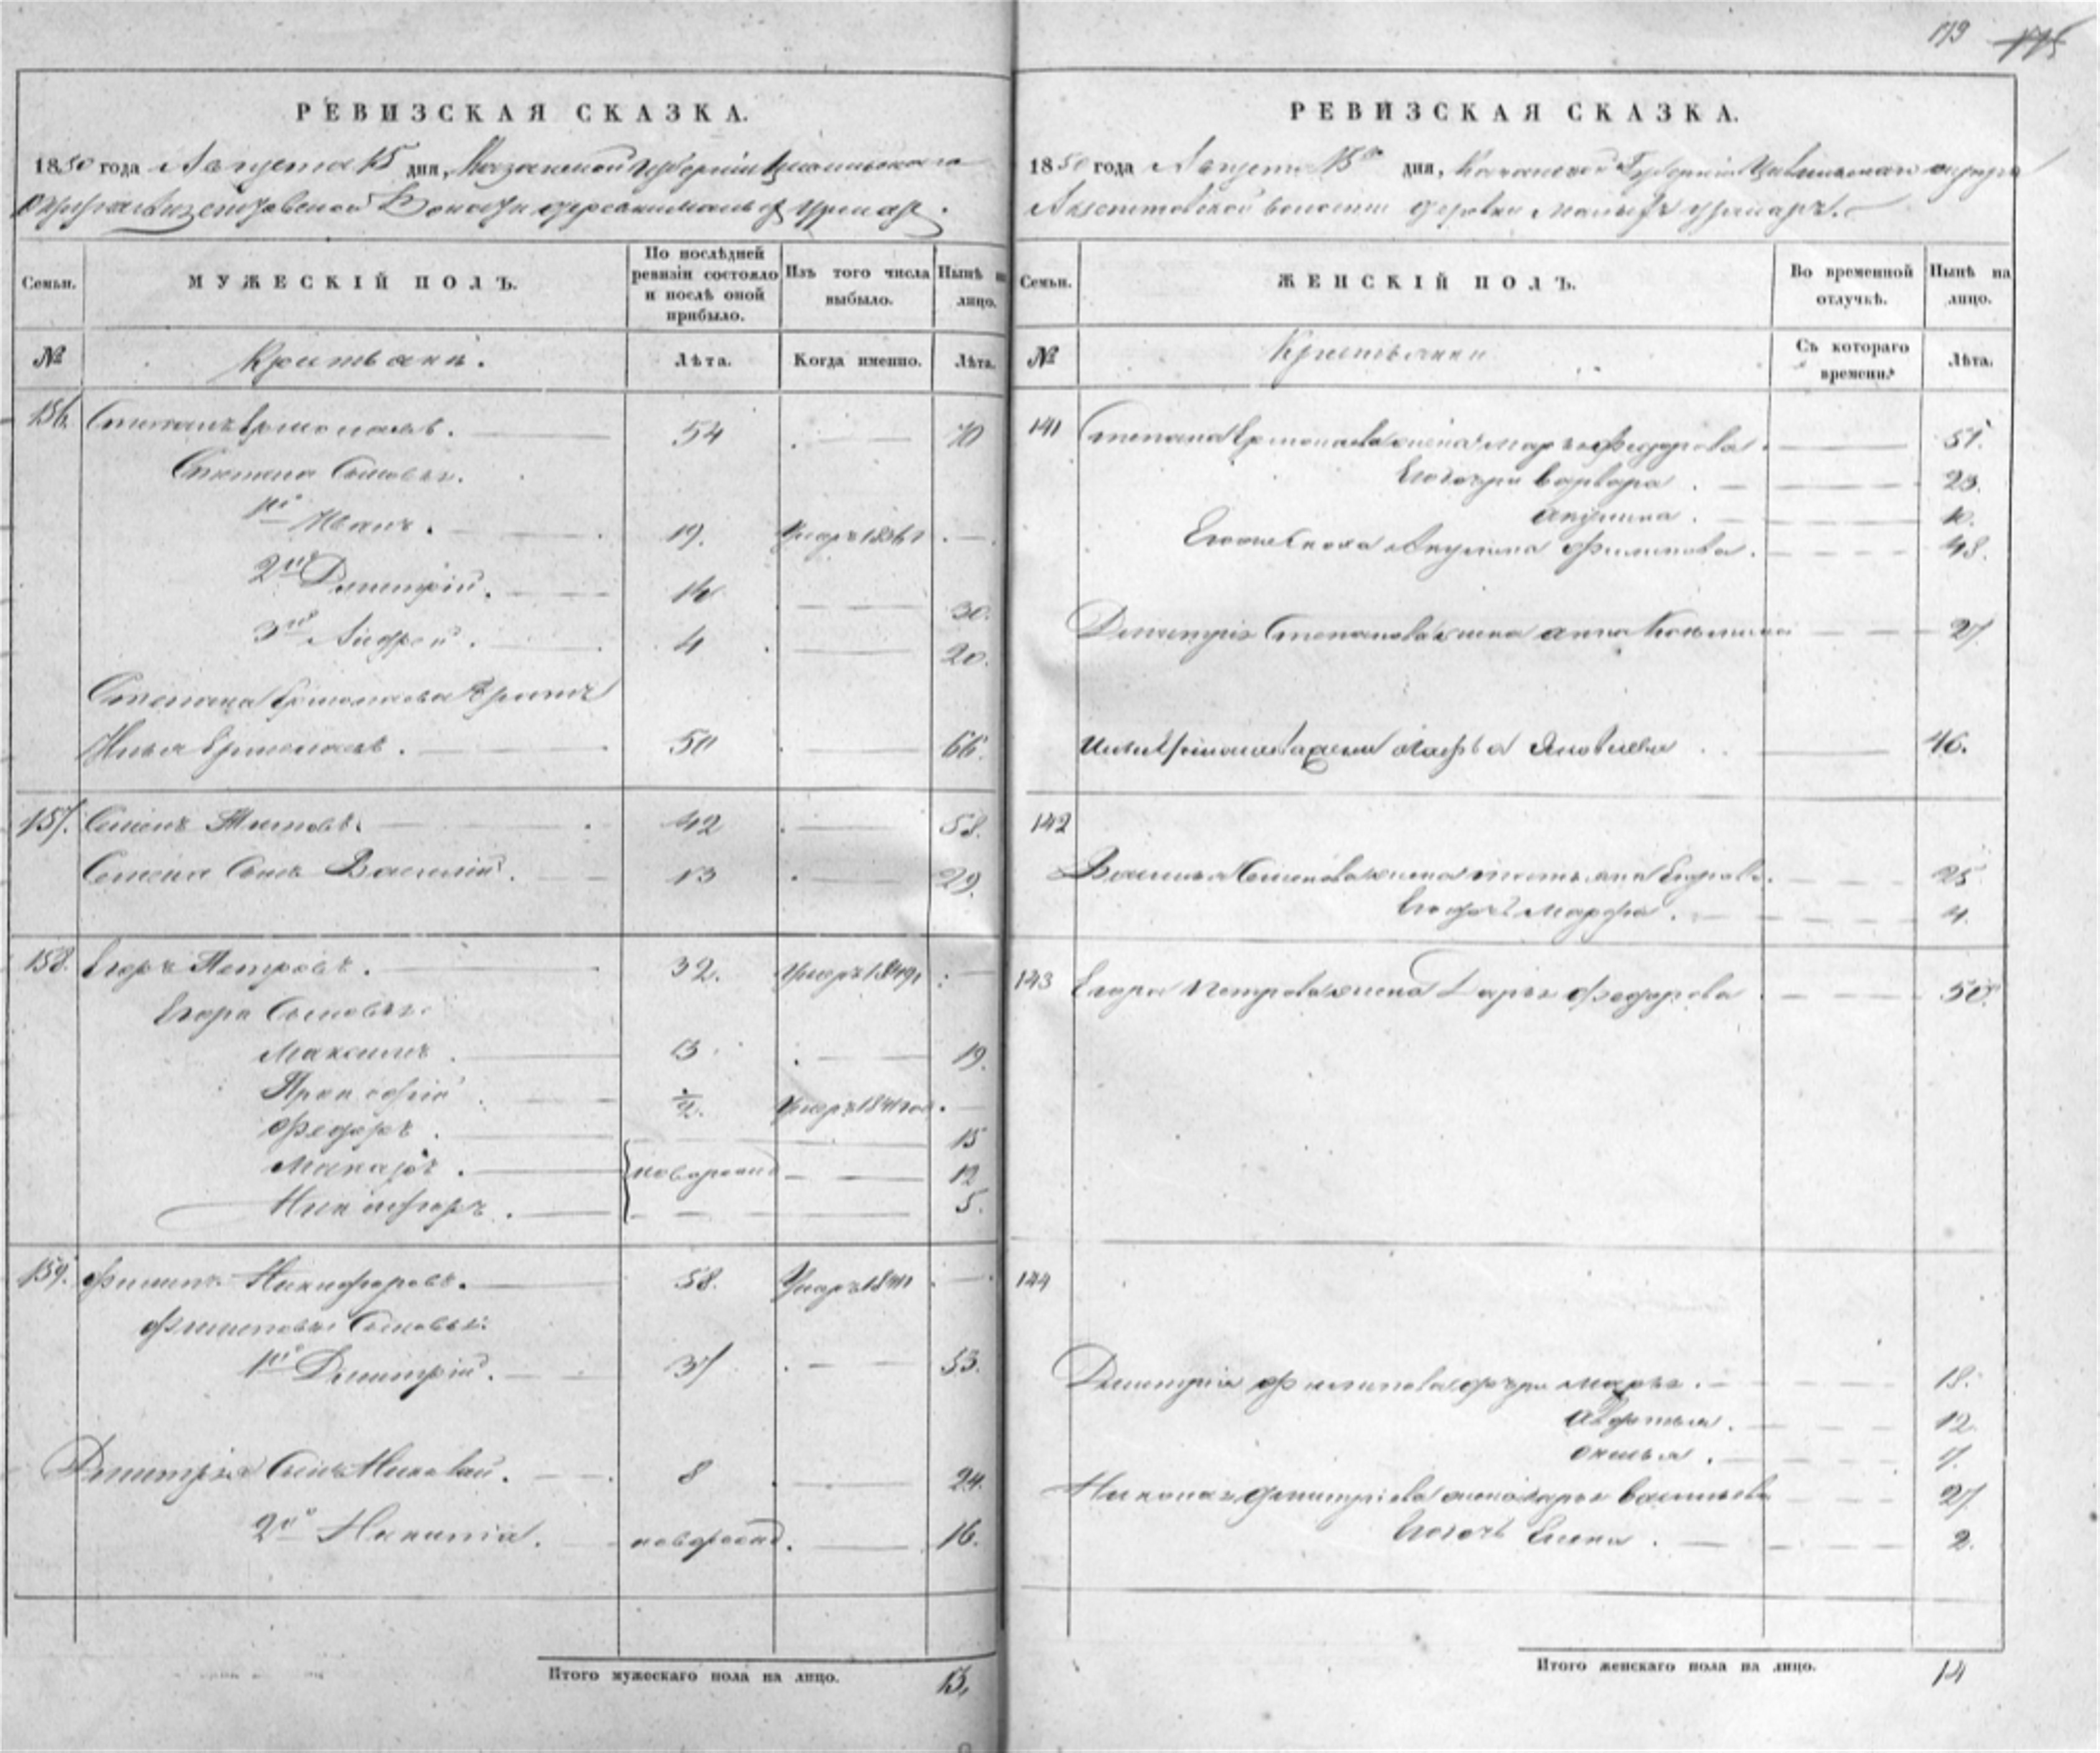 179 175
РЕВИЗСКАЯ СКАЗКА.
1850 года Августа 15 дня, Казанской Губернии Цивильскаго
Округа волости деревни Малыхъ Урмаръ.
Семьи. МУЖЕСКІЙ ПОЛЪ. По послѣдней ревизіи состояло и послѣ оной прибыло. Изъ того числа выбыло. Нынѣ на лицо.
№ Крестьяне. Лѣта. Когда именно. Лѣта.
156. Степанъ Ермолаевъ. 54 70
Степана Сыновья.
1й Иванъ. 19. Умеръ
2й Димитрій. 14 30.
3й Андрей. 4 20.
Степана Ермолаева братъ
Илья Ермолаевъ. 50 66.
157. Семенъ Титовъ. 42 58.
Семена Сынъ Василій. 13 29.
158. Егоръ Петровъ. 32. Умеръ 1849
Егора Сыновья:
Максимъ. 13 19.
½. Умеръ 1841
Федоръ. 15
Макаръ. новорожд 12
Никифоръ. 5.
159. Филипъ Никифоровъ. 58. Умеръ
Филиповы Сыновья:
1й Димитрій. 37 53.
Димитрія Сынъ Николай. 8 24.
2й Никита. новорожд. 16.
Итого мужескаго пола на лицо. 13,
РЕВИЗСКАЯ СКАЗКА.
1850 года Августа 15го дня, Казанской Губерніи Цивильскаго округа
волости деревни Малыхъ Урмаръ.
Семьи. ЖЕНСКІЙ ПОЛЪ. Во временной отлучкѣ. Нынѣ на лицо.
№ Крестьянки Съ котораго времени. Лѣта.
141 Степана Ермолаева жена Марья Федорова. 51.
Егодочери Варвара. 23.
Акулина. 10.
Акулина Филипова. 48.
Димитрія Степанова жена Анна 27.
Ильи Ермолаева жена Яковлева 46.
142
Василья Семенова жена Татьяна Егорова. 25
Егодочь Марфа. 4.
143 Егора Петрова жена Дарья Федорова 50.
144
Димитрія Филипова дочери Марья. 18.
Авдотья. 12
7.
Николая Димитріева жена Дарья Васильева 27
Егодочь Елена. 2.
Итого женскаго пола на лицо. 14